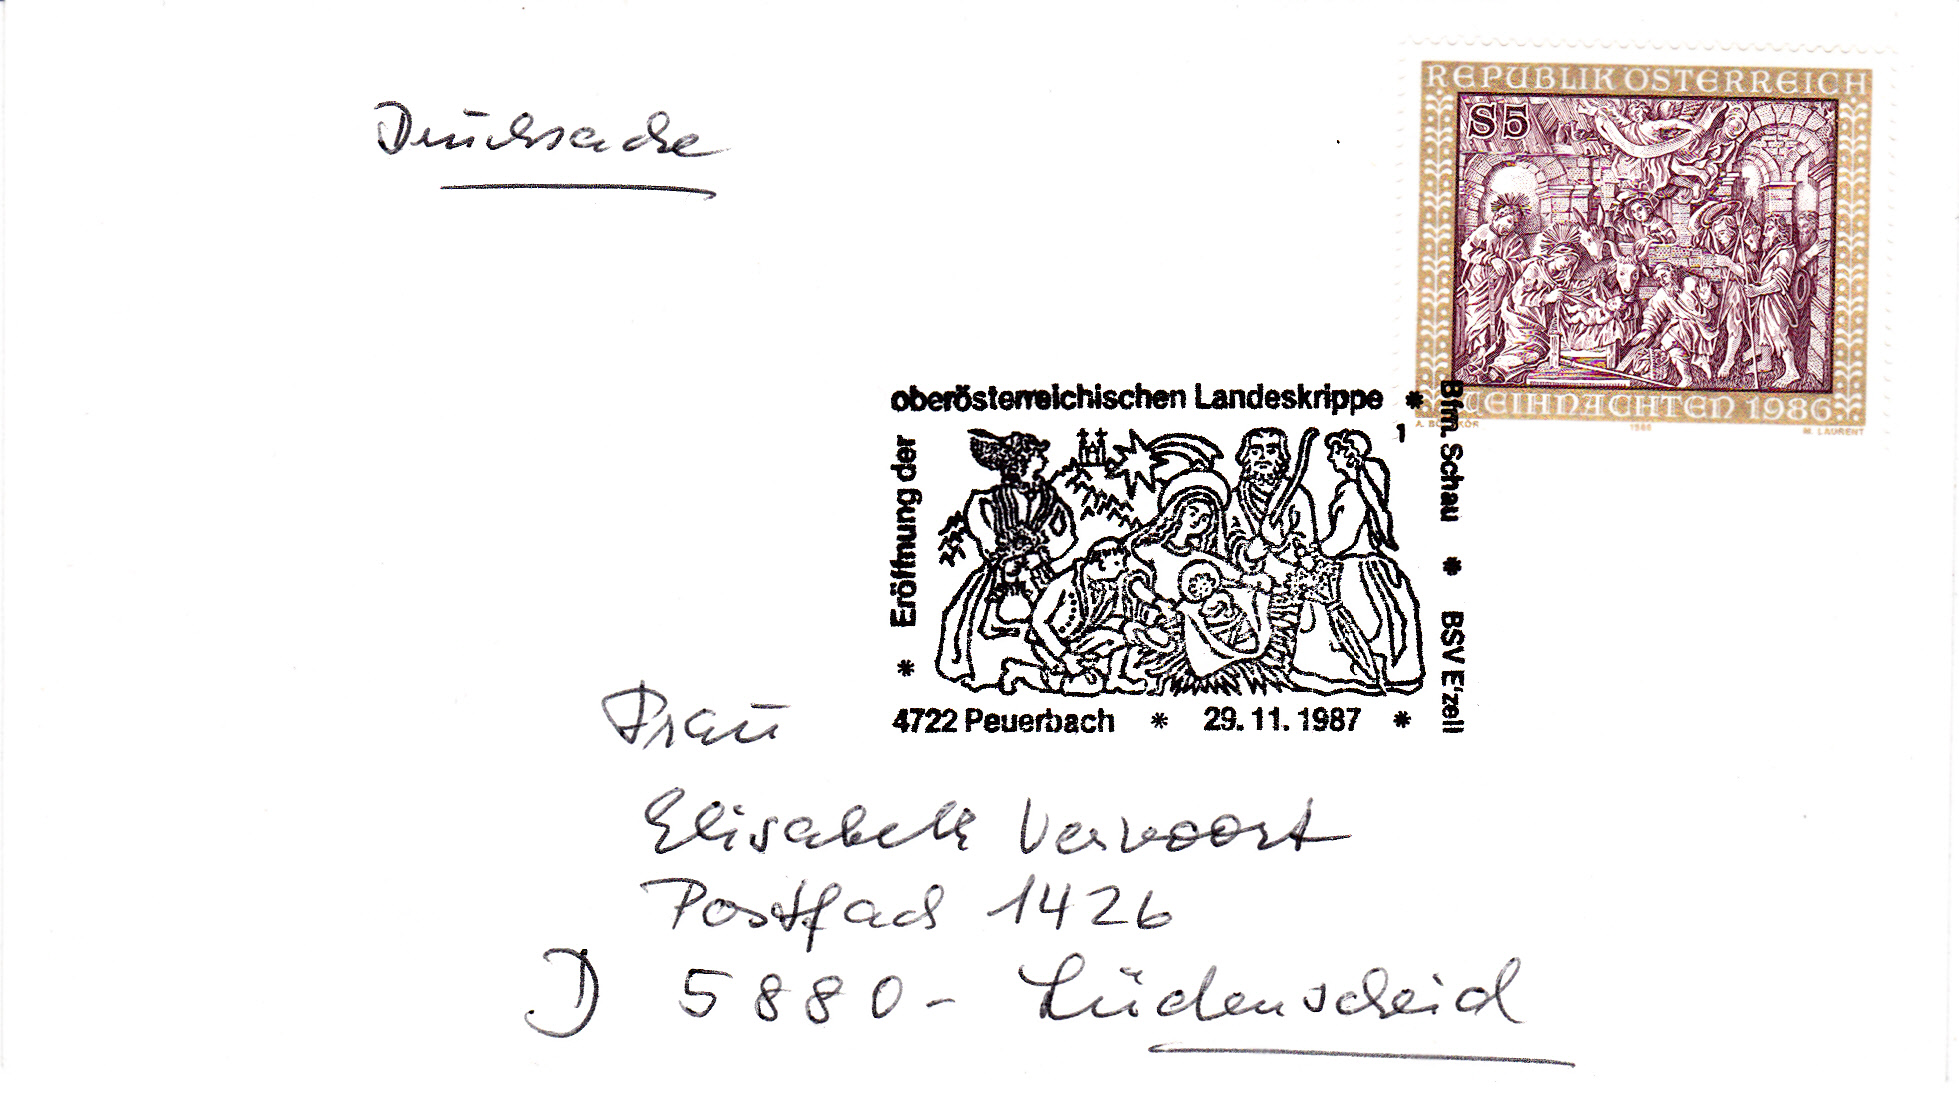 Drucksache
REPUBLIK ÖSTERREICH
S5
WEIHNACHTEN 1986
1986
M. LAURENT
Eröffnung der
oberösterreichischen Landeskrippe *
1
Bfm. Schau * BSV E'zell
* 4722 Peuerbach * 29. 11. 1987 *
Frau
Elisabeth Vervoort
Postfach 1426
D 5880 - Lüdenscheid